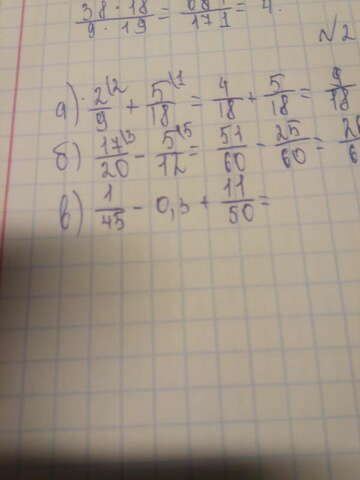 38 · 18 / 9 · 19 = / 171 = 4.
№2
а) 2\2 / 9 + 5\1 / 18 = 4/18 + 5/18 = 9/18
б) 17\3 / 20 - 5\5 / 12 = 51/60 - 25/60 =
в) 1/45 - 0,3 + 11/50 =